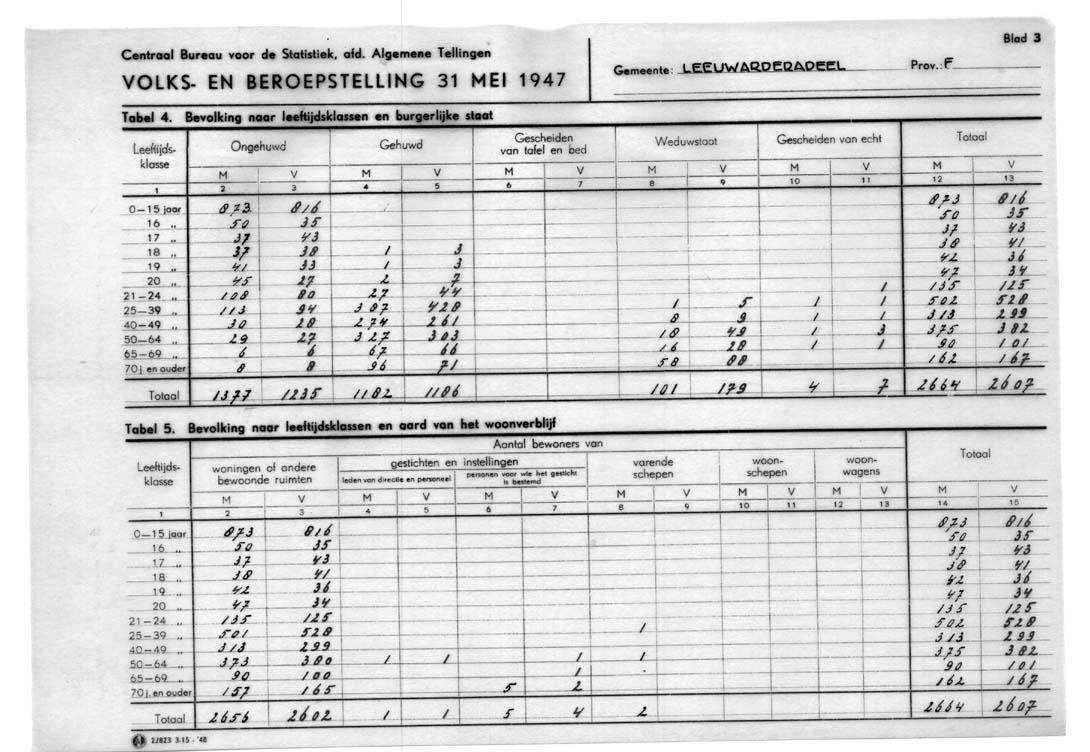 Blad 3
Centraal Bureau voor de Statistiek, afd. Algemene Tellingen
VOLKS- EN BEROEPSTELLING 31 MEI 1947
Gemeente: LEEUWARDERADEEL Prov.: F
Tabel 4. Bevolking naar leeftijdsklassen en burgerlijke staat
Leeftijdsklasse Ongehuwd Gehuwd Gescheiden van tafel en bed Weduwstaat Gescheiden van echt Totaal
M V M V M V M V M V M V
1 2 3 4 5 6 7 8 9 10 11 12 13
0—15 jaar 873 816 873 816
16 „ 50 35 50 35
17 „ 37 43 37 43
18 „ 37 38 1 3 38 41
19 „ 41 33 1 3 42 36
20 „ 45 27 2 7 47 34
21—24 „ 108 80 27 44 1 135 125
25—39 „ 113 94 387 428 1 5 1 1 502 528
40—49 „ 30 28 274 261 8 9 1 1 313 299
50—64 „ 29 27 327 303 18 49 1 3 375 382
65—69 „ 6 6 67 66 16 28 1 1 90 101
70 j. en ouder 8 8 96 71 58 88 162 167
Totaal 1377 1235 1182 1186 101 179 4 7 2664 2607
Tabel 5. Bevolking naar leeftijdsklassen en aard van het woonverblijf
Aantal bewoners van
Leeftijdsklasse woningen of andere bewoonde ruimten gestichten en instellingen varende schepen woonschepen woonwagens Totaal
leden van directie en personeel personen voor wie het gesticht is bestemd
M V M V M V M V M V M V M V
1 2 3 4 5 6 7 8 9 10 11 12 13 14 15
0—15 jaar 873 816 873 816
16 „ 50 35 50 35
17 „ 37 43 37 43
18 „ 38 41 38 41
19 „ 42 36 42 36
20 „ 47 34 47 34
21—24 „ 135 125 135 125
25—39 „ 501 528 1 502 528
40—49 „ 313 299 313 299
50—64 „ 373 380 1 1 1 1 375 382
65—69 „ 90 100 1 90 101
70 j. en ouder 157 165 5 2 162 167
Totaal 2656 2602 1 1 5 4 2 2664 2607
22823 3-15 - '48